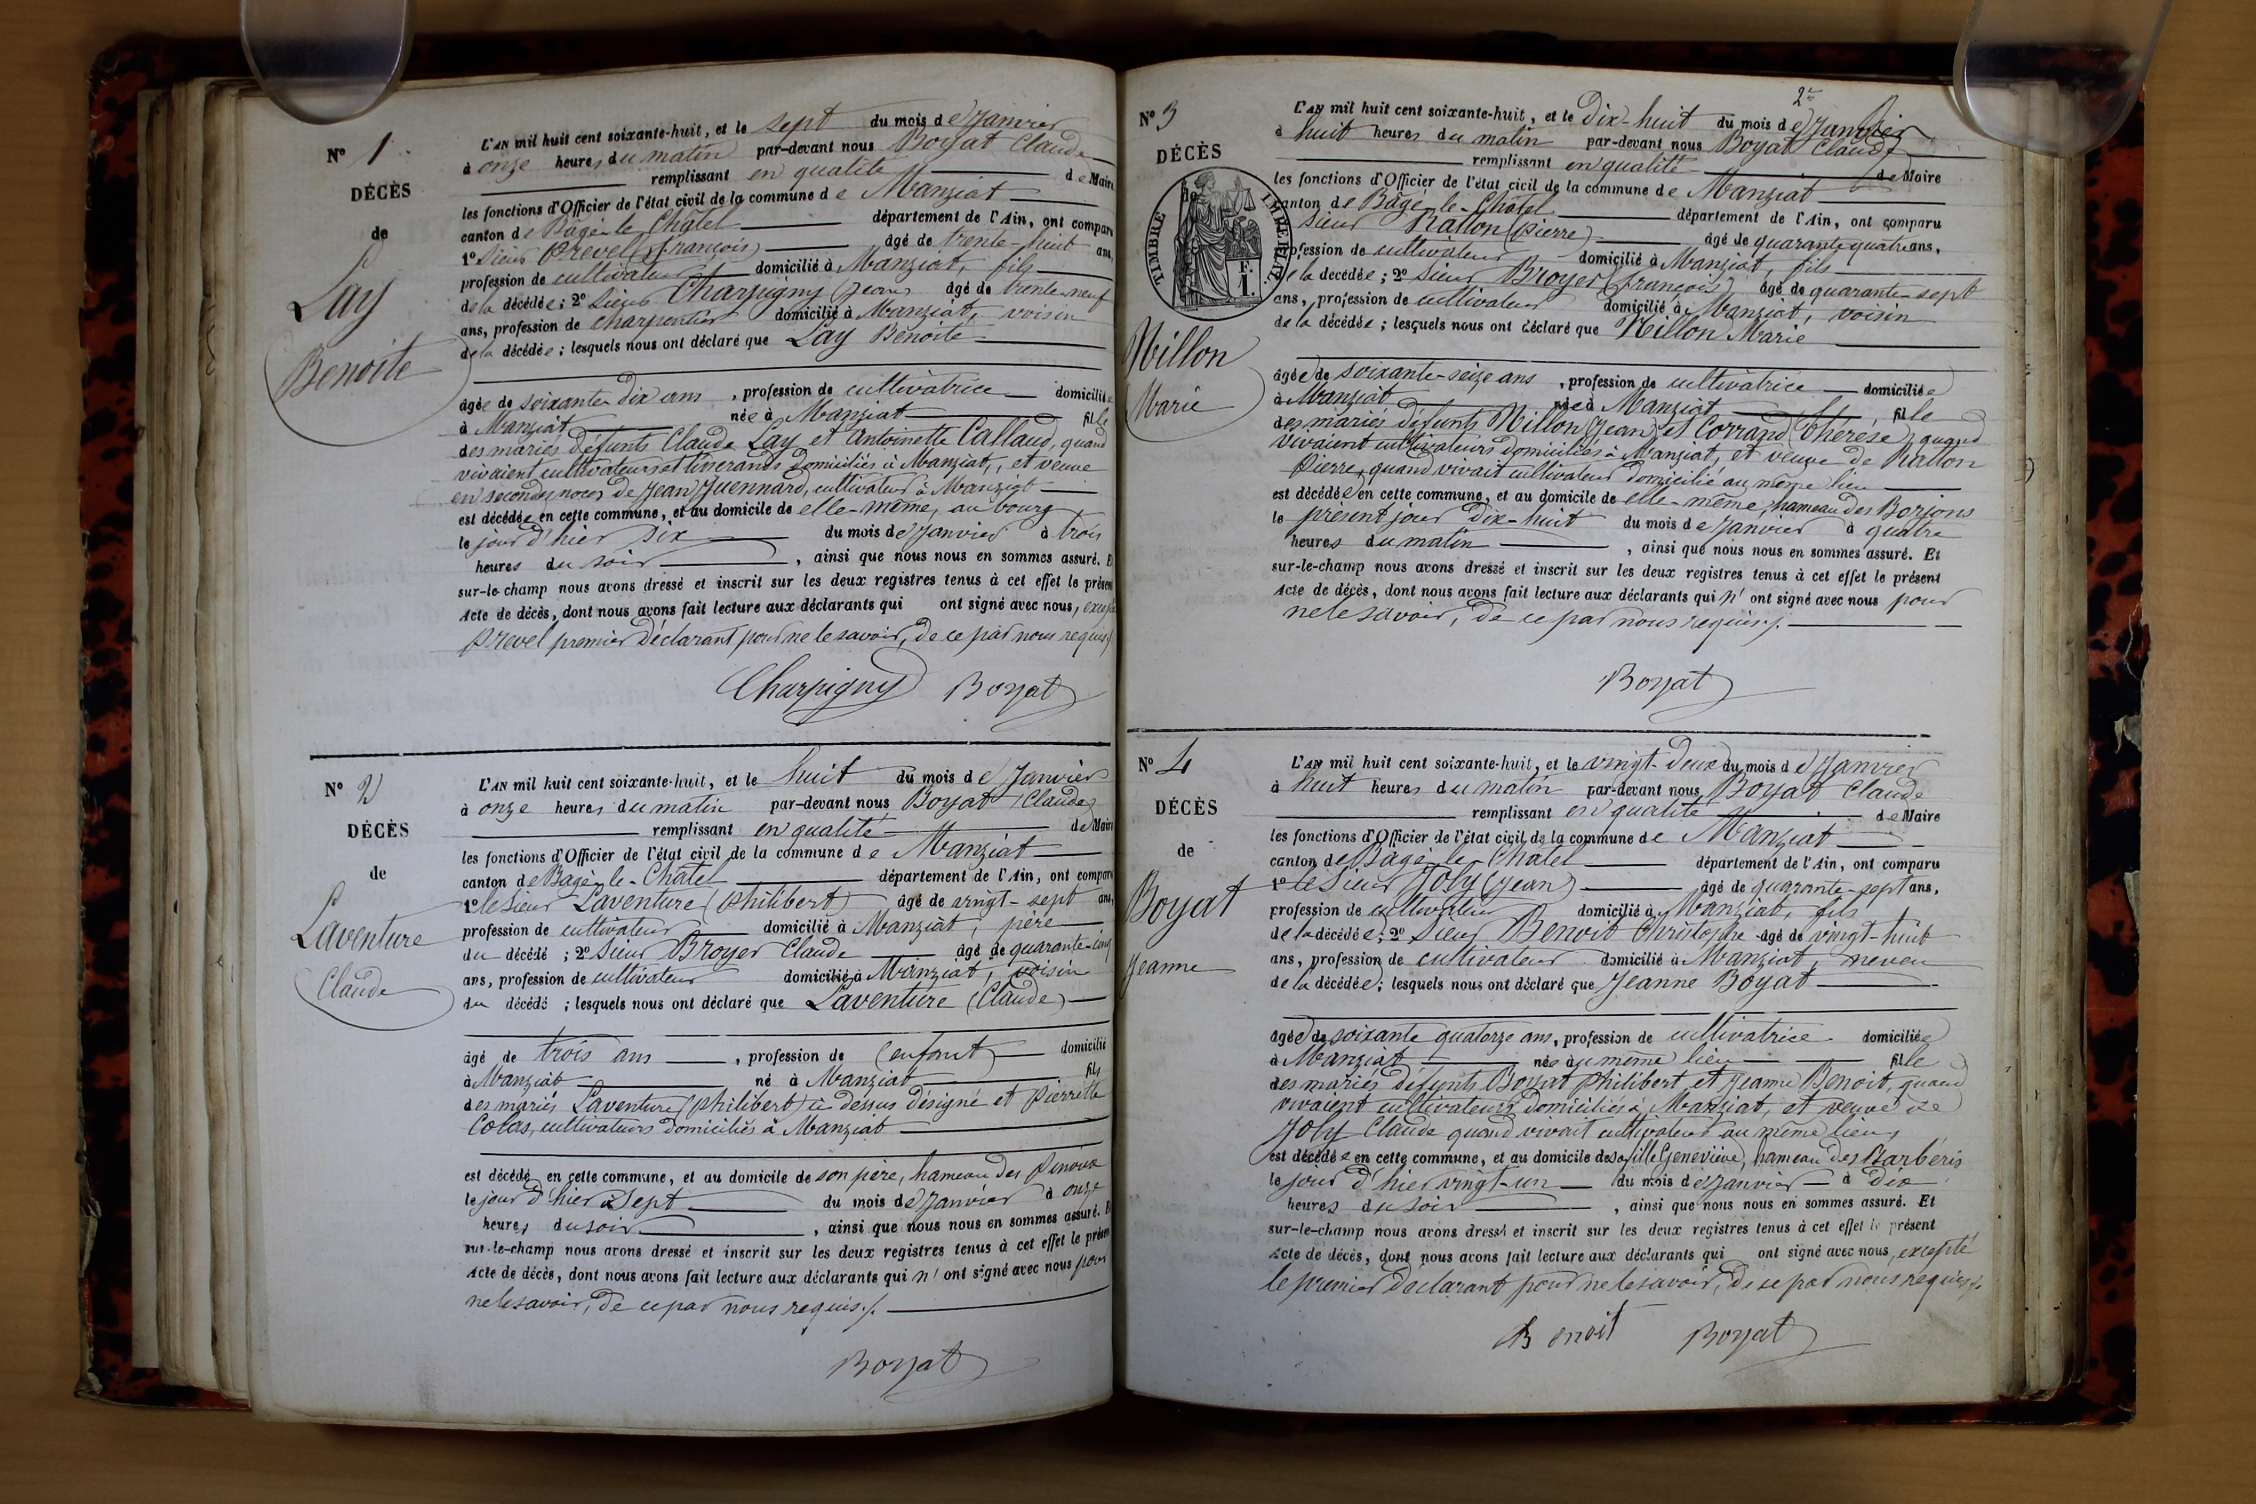 N° 1
DÉCÈS
de
Lay
Benoite
L'AN mil huit cent soixante-huit, et le sept du mois de Janvier
à onze heures du matin par-devant nous Boyat Claude
remplissant en qualité de Maire
les fonctions d'Officier de l'état civil de la commune de Manziat
canton de Bagé-le-Châtel département de l'Ain, ont comparu
1° Sieur Prevel (François) âgé de trente-huit ans,
profession de cultivateur domicilié à Manziat, fils
de la décédée ; 2° Sieur Charpigny (Jean) âgé de trente-neuf
ans, profession de charpentier domicilié à Manziat, voisin
de la décédée ; lesquels nous ont déclaré que Lay Benoite
âgée de soixante-dix ans, profession de cultivatrice domiciliée
à Manziat née à Manziat fille
des mariés défunts Claude Lay et Antoinette Callaud, quand
vivaient cultivateurs et tisserands domiciliés à Manziat, et veuve
en secondes noces de Jean Guennard, cultivateur à Manziat
est décédée en cette commune, et au domicile de elle-même, au bourg
le jour d'hier six du mois de Janvier à trois
heures du soir, ainsi que nous nous en sommes assuré. Et
sur-le-champ nous avons dressé et inscrit sur les deux registres tenus à cet effet le présent
Acte de décès, dont nous avons fait lecture aux déclarants qui ont signé avec nous, excepté
Prevel premier déclarant pour ne le savoir, de ce par nous requis ./.
Charpigny Boyat
N° 2
DÉCÈS
de
Laventure
Claude
L'AN mil huit cent soixante-huit, et le huit du mois de Janvier
à onze heures du matin par-devant nous Boyat (Claude)
remplissant en qualité de Maire
les fonctions d'Officier de l'état civil de la commune de Manziat
canton de Bagé-le-Châtel département de l'Ain, ont comparu
1° le Sieur Laventure (Philibert) âgé de vingt-sept ans,
profession de cultivateur domicilié à Manziat, père
du décédé ; 2° Sieur Broyer Claude âgé de quarante-cinq
ans, profession de cultivateur domicilié à Manziat, voisin
du décédé ; lesquels nous ont déclaré que Laventure (Claude)
âgé de trois ans, profession de (enfant) domicilié
à Manziat né à Manziat fils
des mariés Laventure (Philibert) ci dessus désigné et Pierrette
Colas, cultivateurs domiciliés à Manziat
est décédé en cette commune, et au domicile de son père, hameau des Pinoux
le jour d'hier sept du mois de Janvier à onze
heures du soir, ainsi que nous nous en sommes assuré. Et
sur-le-champ nous avons dressé et inscrit sur les deux registres tenus à cet effet le présent
Acte de décès, dont nous avons fait lecture aux déclarants qui n'ont signé avec nous pour
ne le savoir, de ce par nous requis ./.
Boyat
2e
N° 3
DÉCÈS
TIMBRE IMPÉRIAL
Millon
Marie
L'AN mil huit cent soixante-huit, et le Dix-huit du mois de Janvier
à huit heures du matin par-devant nous Boyat Claude
remplissant en qualité de Maire
les fonctions d'Officier de l'état civil de la commune de Manziat
canton de Bagé-le-Châtel département de l'Ain, ont comparu
Sieur Rallon (Pierre) âgé de quarante quatre ans,
profession de cultivateur domicilié à Manziat, fils
de la décédée ; 2° Sieur Broyer (François) âgé de quarante-sept
ans, profession de cultivateur domicilié à Manziat, voisin
de la décédée ; lesquels nous ont déclaré que Millon Marie
âgée de soixante-seize ans, profession de cultivatrice domiciliée
à Manziat née à Manziat fille
des mariés défunts Millon (Jean) et Corrand (Thérèse), quand
vivaient cultivateurs domiciliés à Manziat, et veuve de Rallon
Pierre, quand vivait cultivateur domicilié au même lieu
est décédée en cette commune, et au domicile de elle-même, hameau des Borjons
le présent jour dix-huit du mois de Janvier à quatre
heures du matin, ainsi que nous nous en sommes assuré. Et
sur-le-champ nous avons dressé et inscrit sur les deux registres tenus à cet effet le présent
Acte de décès, dont nous avons fait lecture aux déclarants qui n'ont signé avec nous pour
ne le savoir, de ce par nous requis ./.
Boyat
N° 4
DÉCÈS
de
Boyat
Jeanne
L'AN mil huit cent soixante-huit, et le vingt-deux du mois de Janvier
à huit heures du matin par-devant nous Boyat Claude
remplissant en qualité de Maire
les fonctions d'Officier de l'état civil de la commune de Manziat
canton de Bagé-le-Châtel département de l'Ain, ont comparu
1° le Sieur Joly (Jean) âgé de quarante-sept ans,
profession de cultivateur domicilié à Manziat, fils
de la décédée ; 2° Sieur Benoit Christophe âgé de vingt-huit
ans, profession de cultivateur domicilié à Manziat, neveu
de la décédée ; lesquels nous ont déclaré que Jeanne Boyat
âgée de soixante quatorze ans, profession de cultivatrice domiciliée
à Manziat née au même lieu fille
des mariés défunts Boyat Philibert et Jeanne Benoit, quand
vivaient cultivateurs domiciliés à Manziat, et veuve de
Joly Claude quand vivait cultivateur au même lieu,
est décédée en cette commune, et au domicile de sa fille Geneviève, hameau des Barbéris
le jour d'hier vingt-un du mois de Janvier à dix
heures du soir, ainsi que nous nous en sommes assuré. Et
sur-le-champ nous avons dressé et inscrit sur les deux registres tenus à cet effet le présent
Acte de décès, dont nous avons fait lecture aux déclarants qui ont signé avec nous, excepté
le premier déclarant pour ne le savoir, de ce par nous requis ./.
Benoit Boyat